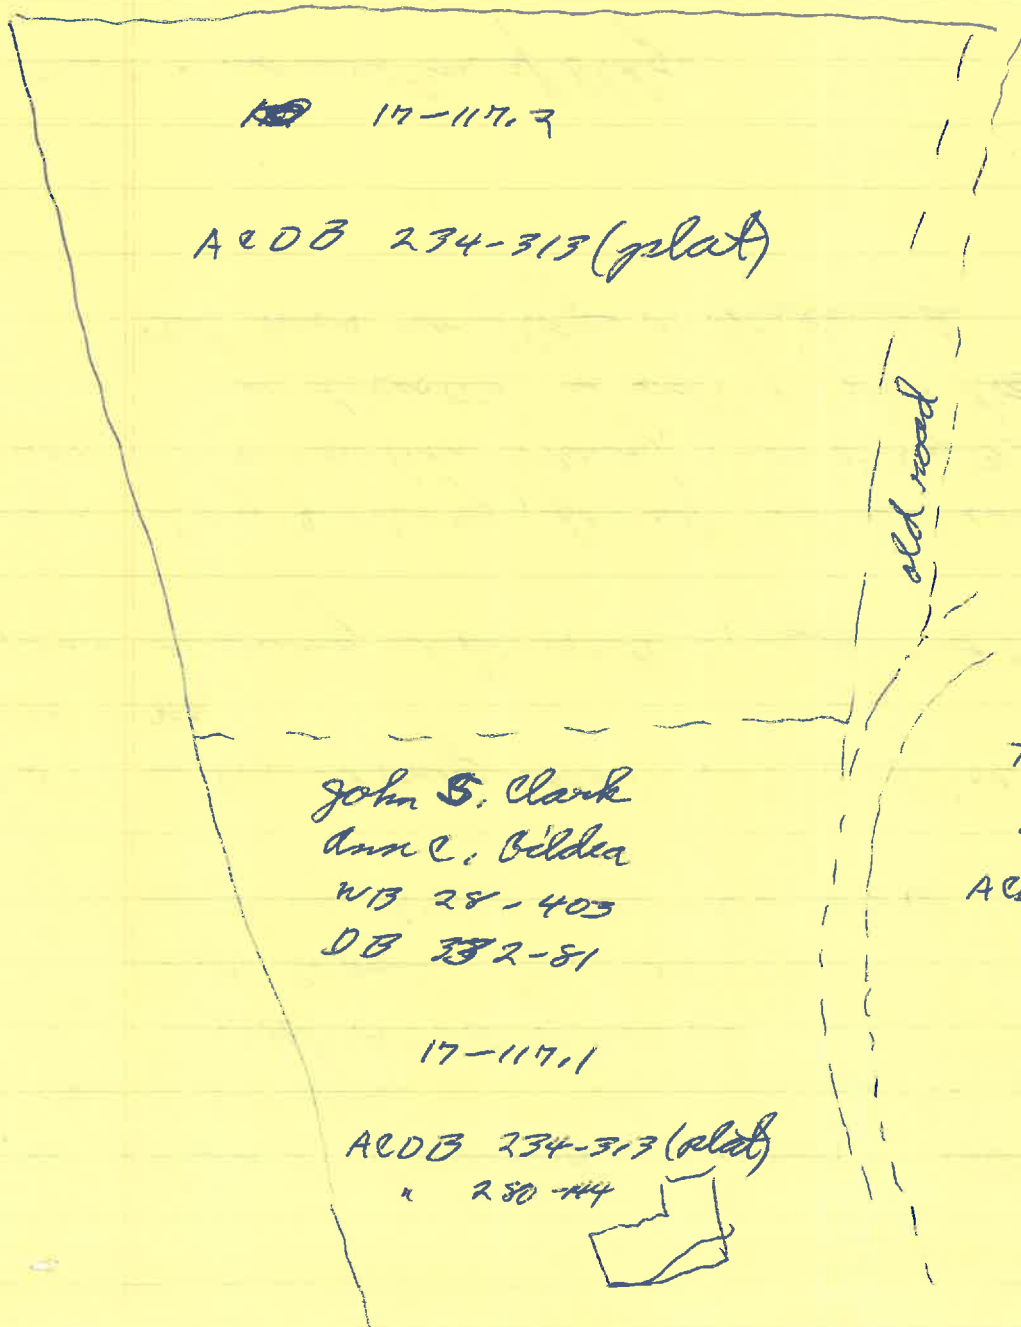 17-117.3
ACDB 234-313 (plat)
old road
John S. Clark
Ann C. Gildea
WB 28-403
DB 332-81
17-117.1
ACDB 234-313 (plat)
" 280-